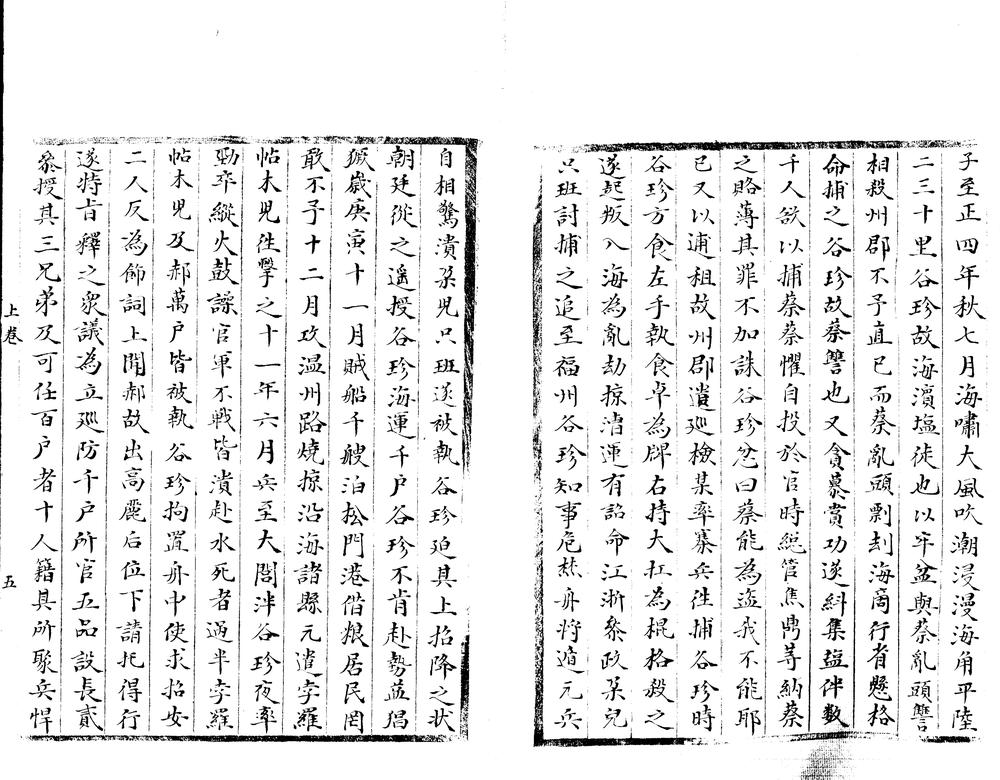 子至正四年秋七月海嘯大風吹潮漫漫海角平陸
二三十里谷珍故海濵塩徒也以牢盆與蔡亂頭讐
相殺州郡不予直已而蔡亂頭剽刦海商行者懸格
命捕之谷珍故蔡讐也又貪慕賞功遂糾集塩伴數
千人欲以捕蔡蔡懼自投於官時緫管焦鼎等納蔡
之賂薄其罪不加誅谷珍忿曰蔡能為盗我不能耶
已又以逋租故州郡遣廵檢某率寨兵徃捕谷珍時
谷珍方食左手執食卓為牌右持大杠為棍格殺之
遂起叛入海為亂劫掠漕運有詔命江浙叅政朶兒
只班討捕之追至福州谷珍知事危焚舟将遁元兵
自相驚潰朶児只班遂被執谷珍廹具上招降之状
朝廷從之遥授谷珍海運千户谷珍不肯赴勢益猖
獗嵗庚寅十一月賊船千艘泊松門港借粮居民罔
敢不予十二月攻温州路燒掠沿海諸縣元遣孛羅
帖木児徃擊之十一年六月兵至大閭洋谷珍夜率
勁卒縱火鼓譟官軍不戰皆潰赴水死者過半孛羅
帖木児及郝萬户皆被執谷珍拘置舟中使求招安
二人反為飾詞上聞郝故出高麗后位下請托得行
遂特㫖釋之衆議為立廵防千户所官五品設長貳
叅授其三兄弟及可任百户者十人籍具所聚兵悍
上卷
五